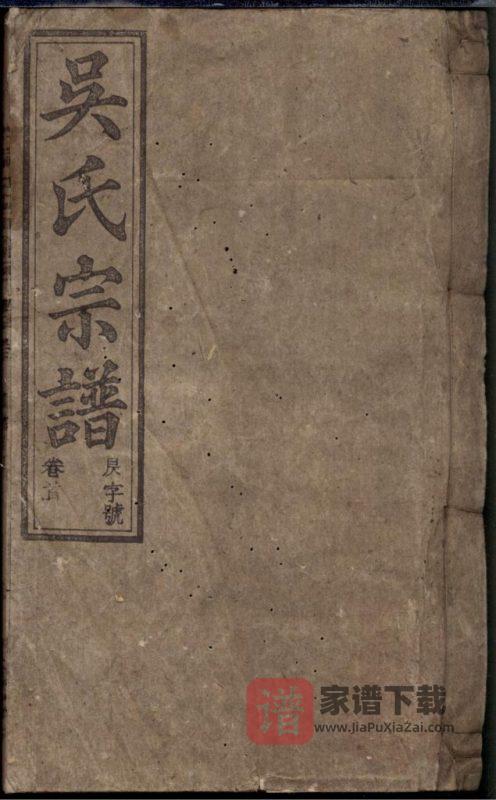 吳氏宗譜
字號
卷首
谱
家谱下载
www.JiaPuXiaZai.com